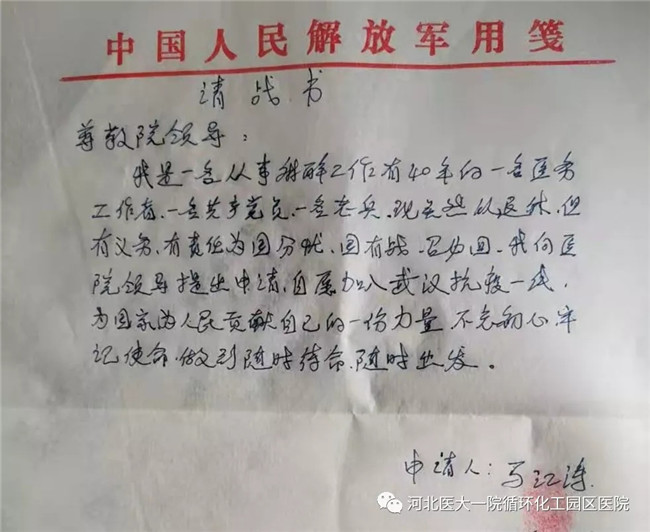 中国人民解放军用笺
请战书
尊敬院领导:
我是一名从事麻醉工作有40年的一名医务
工作者、一名共产党员、一名老兵、现虽然以退休,但
有义务、有责任为国分忧、国有战、召必回、我向医
院领导提出申请,自愿加入武汉抗疫一线,
为国家为人民贡献自己的一份力量 不忘初心 牢
记使命、做到随时待命、随时出发。
申请人:马江涛
河北医大一院循环化工园区医院